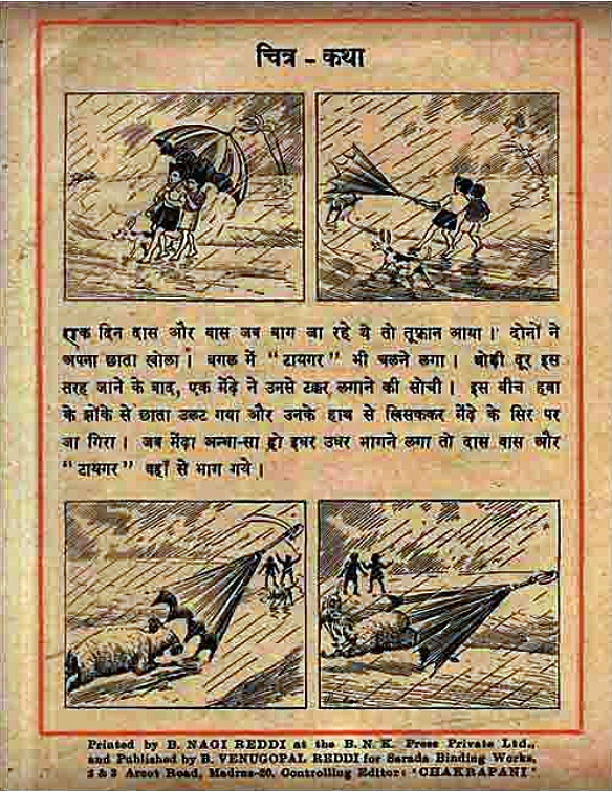 चित्र - कथा
एक दिन दास और वास जब बाग जा रहे थे तो तूफ़ान आया। दोनों ने
अपना छाता खोला। बगल में "टायगर" भी चलने लगा। थोड़ी दूर इस
तरह जाने के बाद, एक मेंढ़े ने उनसे टक्कर लगाने की सोची। इस बीच हवा
के झोंके से छाता उलट गया और उनके हाथ से खिसककर मेंढ़े के सिर पर
जा गिरा। जब मेंढ़ा अन्धा-सा हो इधर उधर भागने लगा तो दास वास और
"टायगर" वहाँ से भाग गये।
Printed by B. NAGI REDDI at the B. N. K. Press Private Ltd.,
and Published by B. VENUGOPAL REDDI for Sarada Binding Works,
2 & 3 Arcot Road, Madras-26. Controlling Editor: 'CHAKRAPANI'